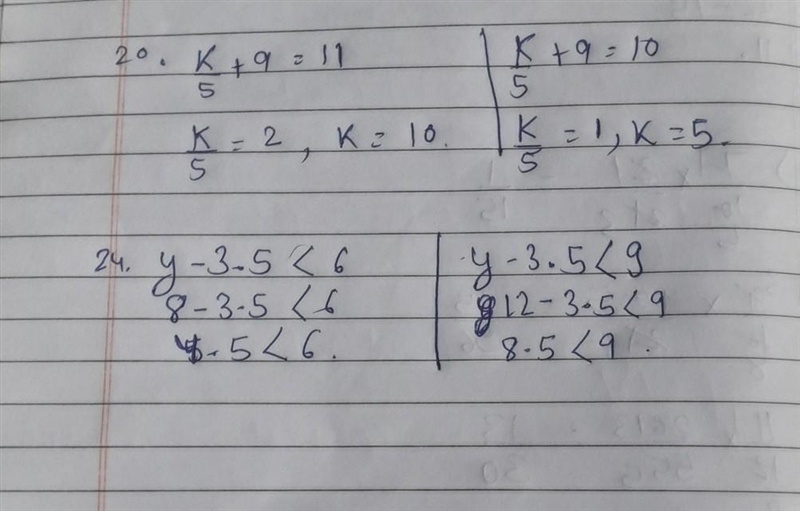 20. K/5 + 9 = 11
K/5 = 2, K = 10.
K/5 + 9 = 10
K/5 = 1, K = 5.
24. y - 3.5 < 6
8 - 3.5 < 6
4.5 < 6.
y - 3.5 < 9
12 - 3.5 < 9
8.5 < 9.